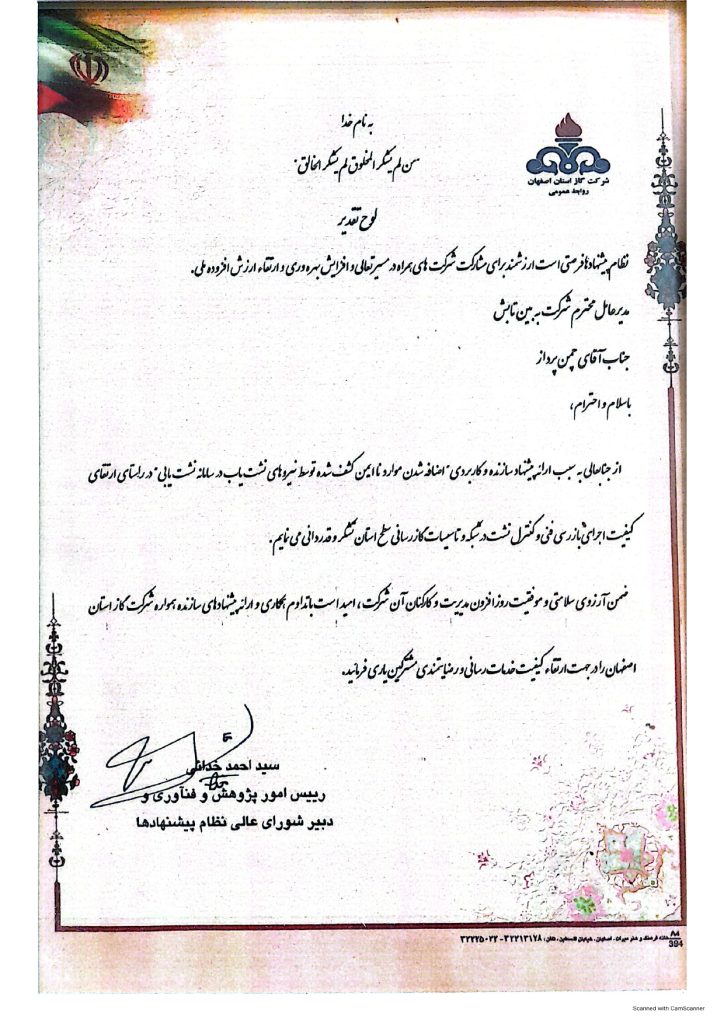 به نام خدا
من لم یشکر المخلوق لم یشکر الخالق
شرکت گاز استان اصفهان
روابط عمومی
لوح تقدیر
نظام پیشنهادها فرصتی است ارزشمند برای مشارکت شرکت های همراه در مسیر تعالی و افزایش بهره وری و ارتقاء ارزش افزوده ملی.
مدیرعامل محترم شرکت به بین تابش
جناب آقای چمن پرداز
باسلام و احترام،
از جنابعالی به سبب ارائه پیشنهاد سازنده و کاربردی "اضافه شدن موارد ناایمن کشف شده توسط نیروهای نشت یاب در سامانه نشت یابی" در راستای ارتقای
کیفیت اجرای بازرسی فنی و کنترل نشت در شبکه و تاسیسات گازرسانی سطح استان تشکر و قدردانی می نمایم.
ضمن آرزوی سلامتی و موفقیت روز افزون مدیریت و کارکنان آن شرکت، امید است با تداوم همکاری و ارائه پیشنهادهای سازنده همواره شرکت گاز استان
اصفهان را در جهت ارتقاء کیفیت خدمات رسانی و رضایتمندی مشترکین یاری فرمائید.
سید احمد خدائی
رییس امور پژوهش و فنآوری و
دبیر شورای عالی نظام پیشنهادها
خانه فرهنگ و هنر میراث، اصفهان، خیابان فلسطین، تلفن: ۳۲۲۱۳۱۷۸ - ۳۲۲۲۵۰۲۲
394
Scanned with CamScanner